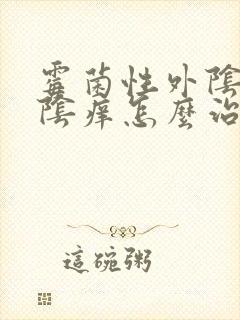 霉菌性外陰
陰痒怎麼治
這碗粥